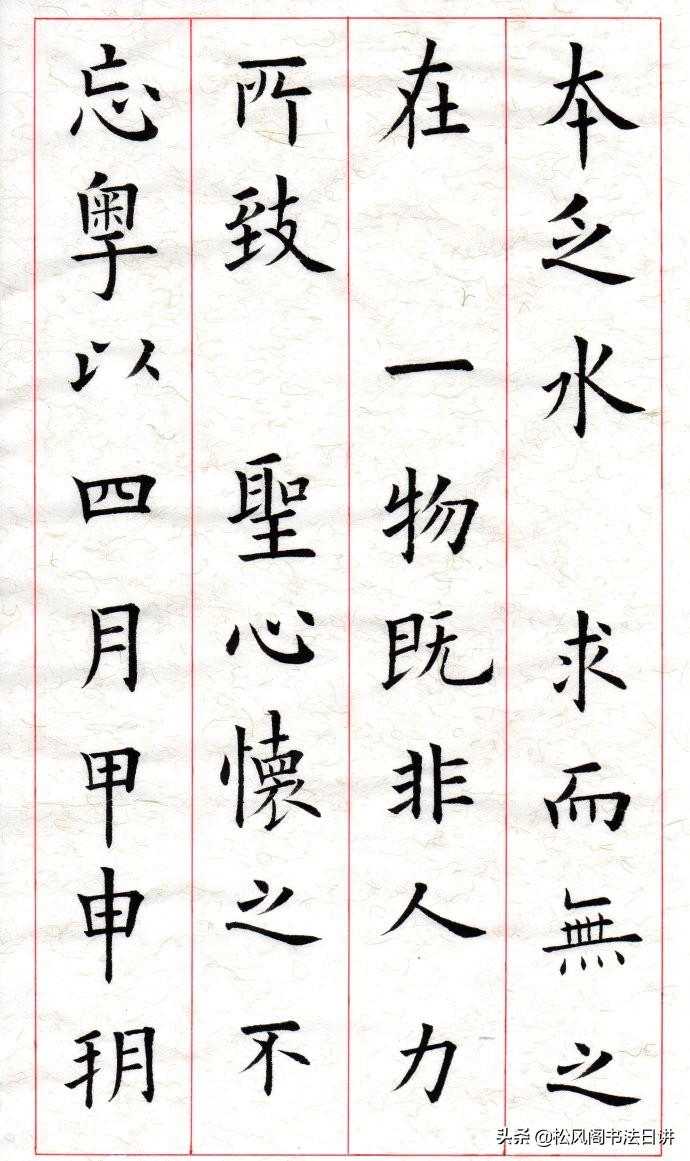 本乏水 求而無之
在 一物既非人力
所致 聖心懷之不
忘粤以四月甲申朔
头条 @松风阁书法日讲